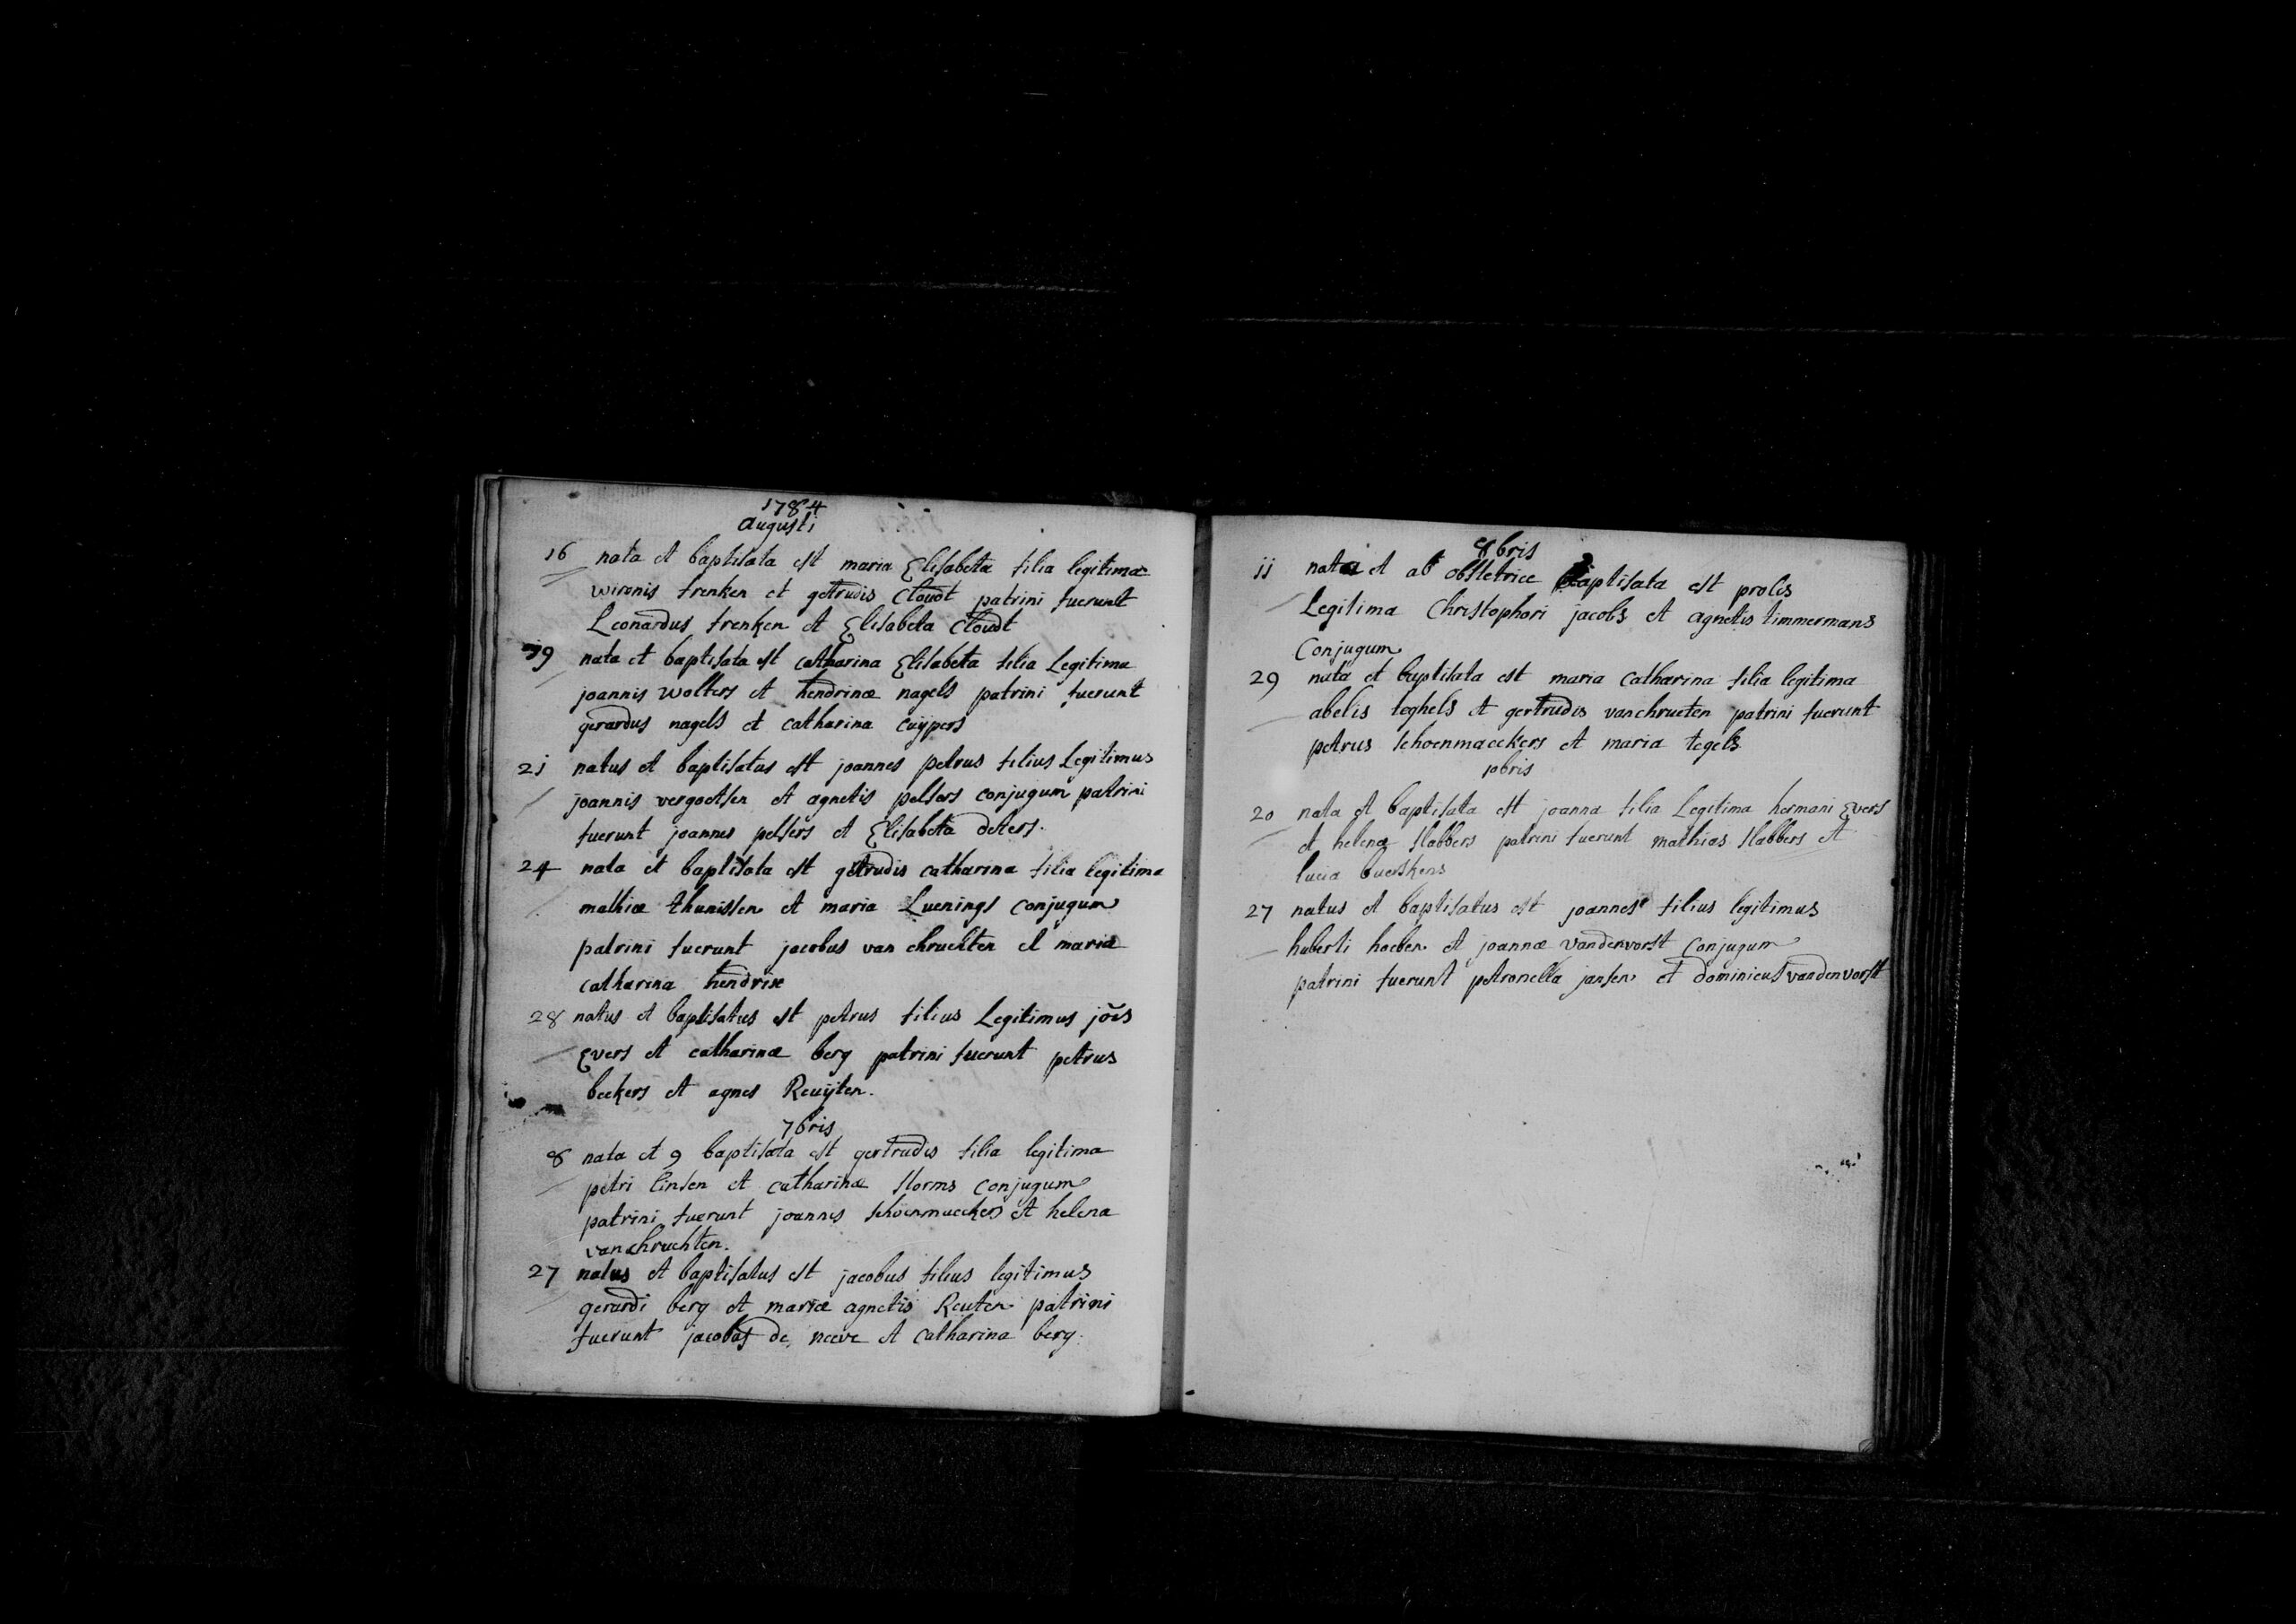 1784
Augusti
16 nata et baptisata est maria Elisabeta filia legitima
wironis frenken et getrudis Cloudt patrini fuerunt
Leonardus frenken et Elisabeta Cloudt
19 nata et baptisata est catharina Elisabeta filia Legitima
joannis wolters et hendrinæ nagels patrini fuerunt
gerardus nagels et catharina cuÿpers
21 natus et baptisatus est joannes petrus filius Legitimus
joannis vergoetsen et agnetis pelsers conjugum patrini
fuerunt joannes pelsers et Elisabeta deters.
24 nata et baptisata est getrudis catharina filia legitima
mathiæ thunissen et maria Luenings conjugum
patrini fuerunt jacobus van chruchten et maria
catharina hendrix
28 natus et baptisatus est petrus filius Legitimus jões
Evers et catharinæ berg patrini fuerunt petrus
beckers et agnes Reuÿten.
7bris
8 nata et 9 baptisata est gertrudis filia legitima
petri linsen et catharinæ storms conjugum
patrini fuerunt joannes schoenmaeckers et helena
van chruchten.
27 natus et baptisatus est jacobus filius legitimus
gerardi berg et mariæ agnetis Reuten patrini
fuerunt jacobus de neeve et catharina berg.
8bris
11 nata et ab obstetrice baptisata est proles
Legitima Christophori jacobs et agnetis timmermans
Conjugum
29 nata et baptisata est maria catharina filia legitima
abelis teghels et gertrudis vanchructen patrini fuerunt
petrus schoenmaeckers et maria tegels
10bris
20 nata et baptisata est joanna filia Legitima hermani Evers
et helenæ slabbers patrini fuerunt mathias slabbers et
lucia buerskens
27 natus et baptisatus est joannes filius legitimus
huberti hoeben et joannæ vandenvorst conjugum
patrini fuerunt petronella jansen et dominicus vandenvorst